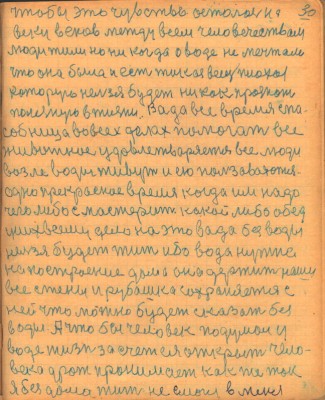 30
чтобы это чувство осталося на
веки веков между всем человечеством
люди жили но никогда о воде не мечтали
что она была и есть такая вещь плохая
которую нельзя будет никак
в жизни. Вода все время спо
собница во всех делах помогать все
животное удовлетворяет все люди
возле воды живут и ею пользоваются
одно прекрасное время когда им надо
чего либо смастерить какой либо обед
их вещи дело на это вода без воды
нельзя будет жить ибо вода нужна
на построение дома она держит наши
все стены и рубашка сохраняется с
ней что можно будет сказать без
воды. А что бы человек подумал и
воде жизнь за счет ея открыт чело-
века дрож пронимает как же так
я без дома жить не смогу в меня